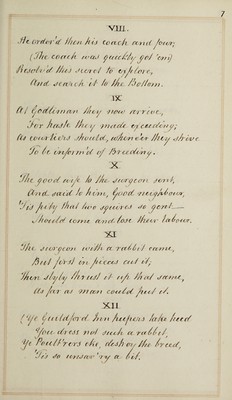 7
VIII.
He order'd then his coach and four;
(The coach was quickly got 'em)
Resolv'd this secret to explore,
And search it to the Bottom.
IX
At Godliman they now arrive,
For haste they made exceeding;
As courtiers should, whene'er they strive
To be inform'd of Breeding.
X
The good wife to the surgeon sent,
And said to him, Good neighbour,
'Tis pity that two squires so gent—
Should come and lose their labour.
XI
The surgeon with a rabbit came,
But first in pieces cut it;
Then slyly thrust it up that same,
As far as man could put it.
XII
(Ye Guildford Inn keepers take heed
You dress not such a rabbit,
Ye Poult'rers eke, destroy the breed,
'Tis so unsav'ry a bit.